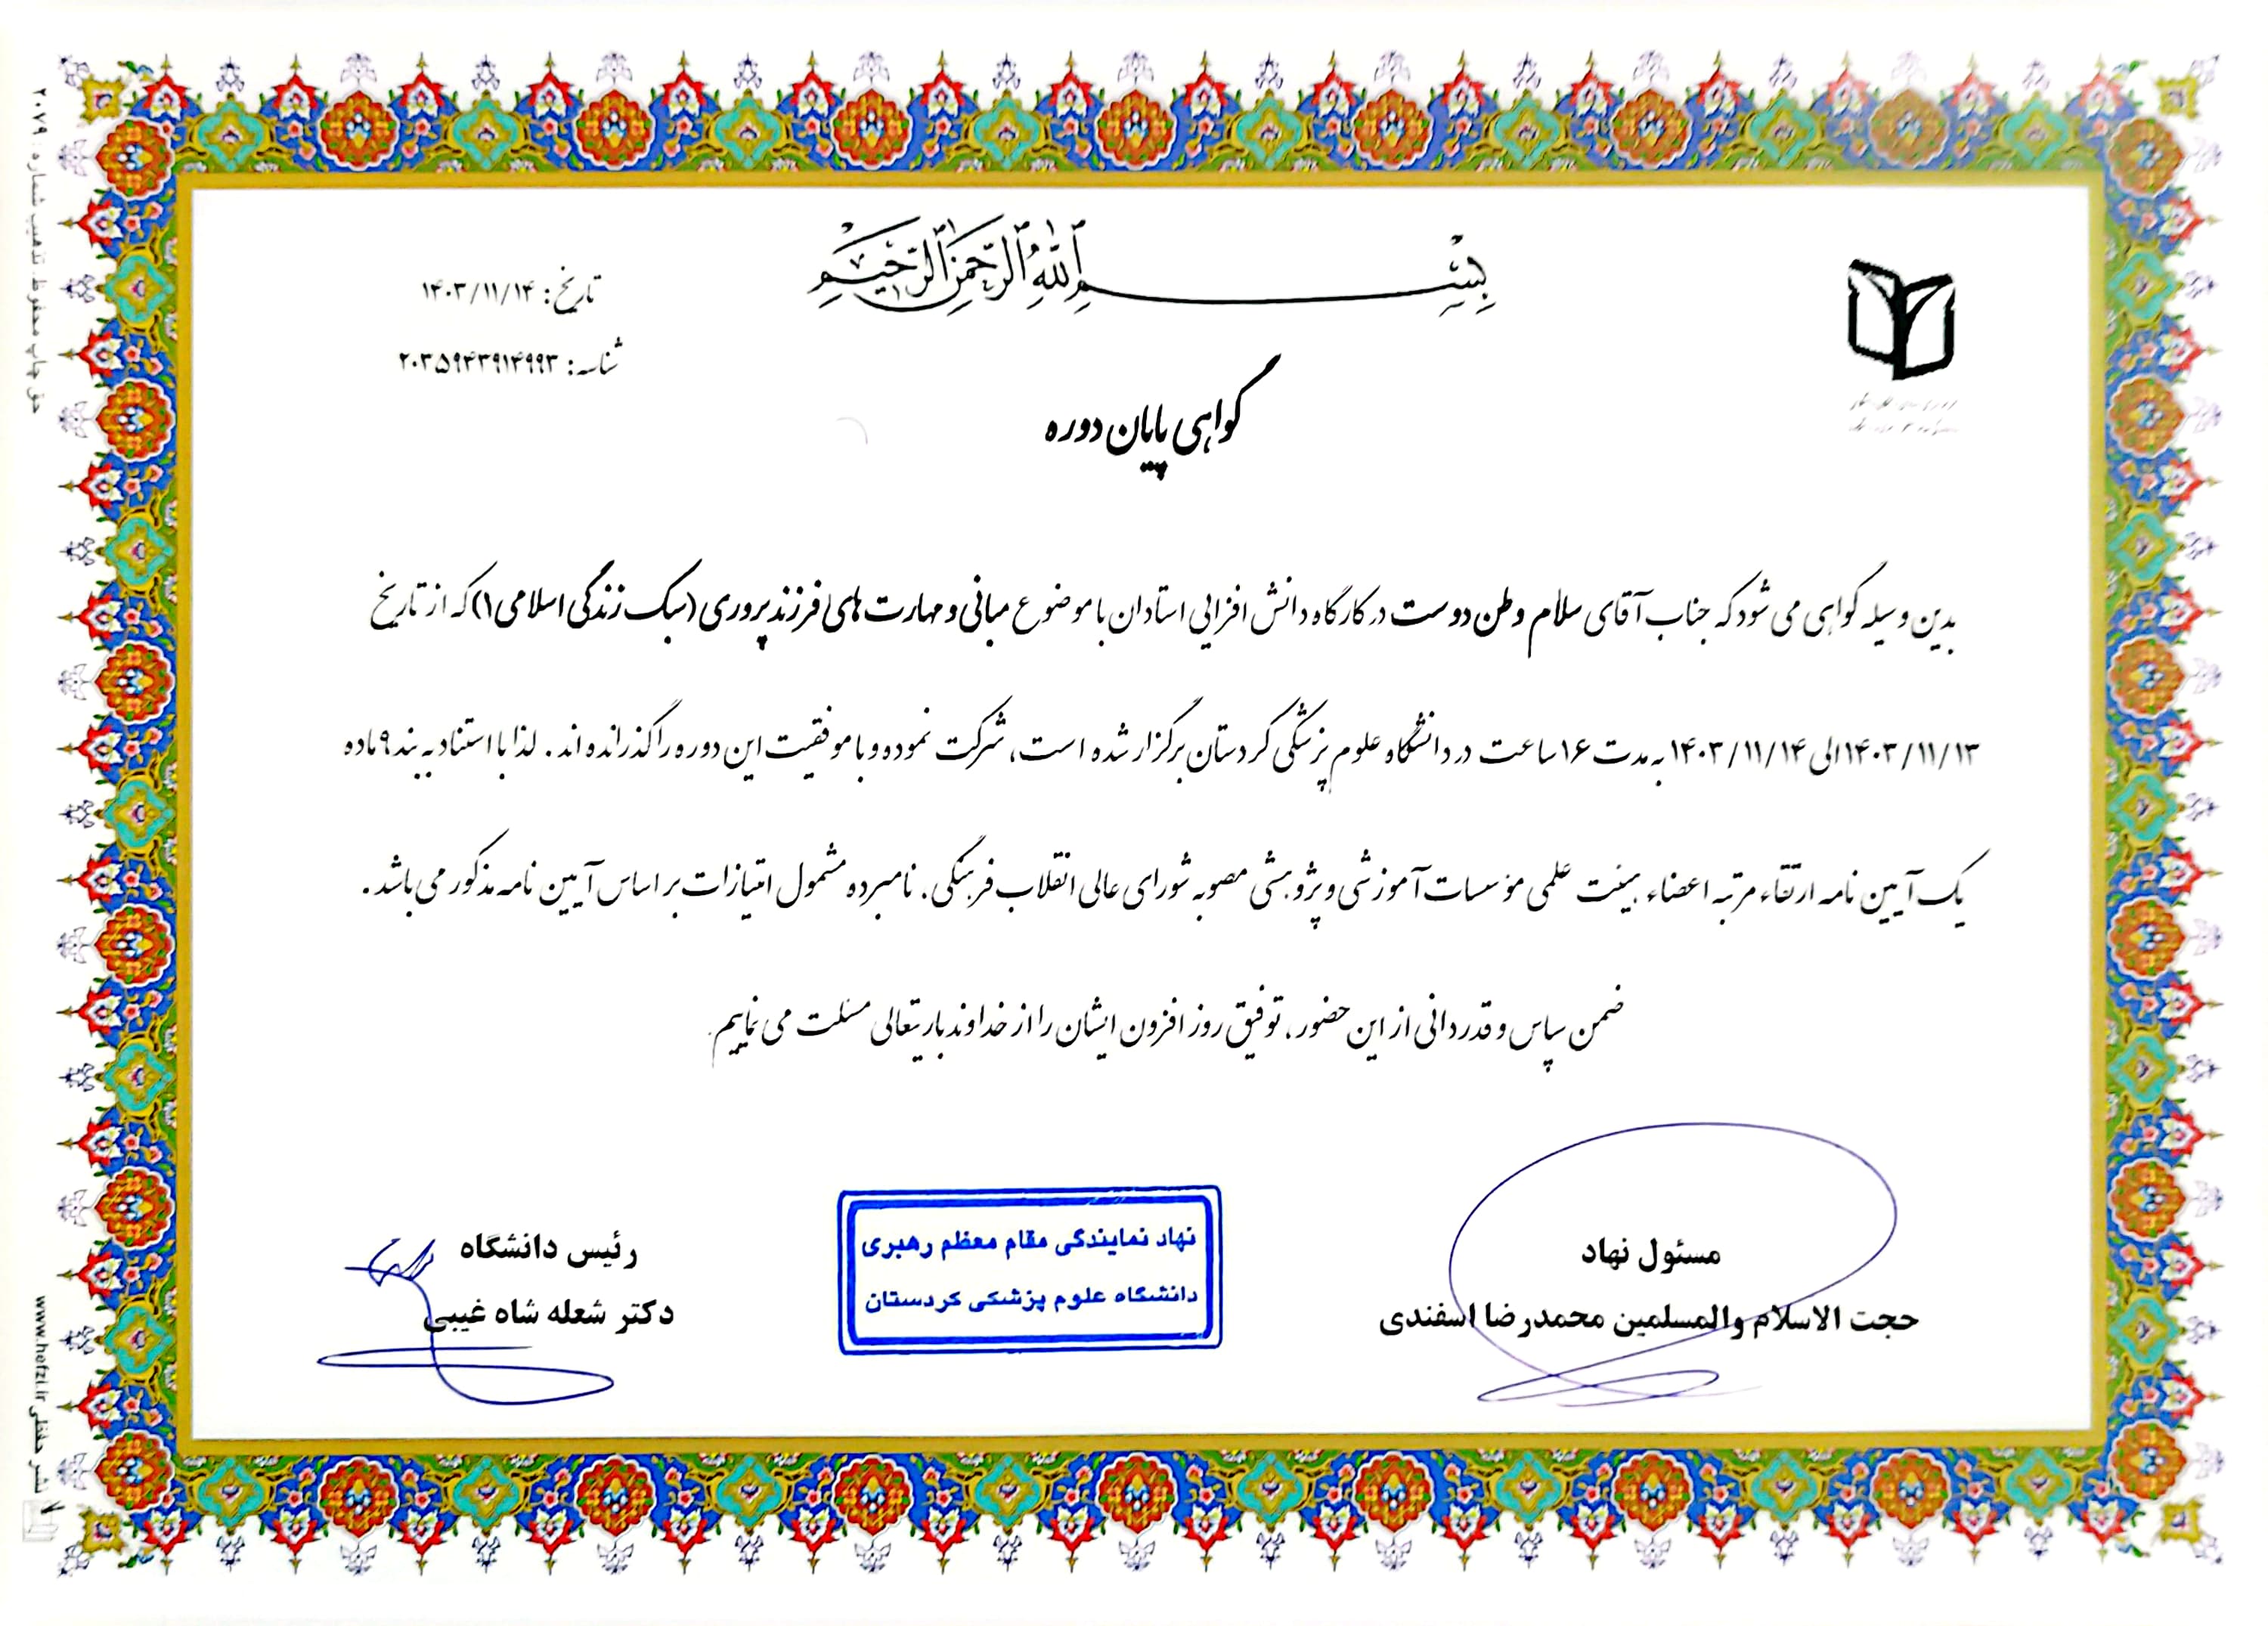 بسم الله الرحمن الرحیم
تاریخ: ۱۴۰۳/۱۱/۱۴
شناسه: ۲۰۳۵۹۴۳۹۱۴۹۹۳
گواهی پایان دوره
بدین وسیله گواهی می شود که جناب آقای سلام وطن دوست در کارگاه دانش افزایی استادان با موضوع مبانی و مهارت های فرزندپروری (سبک زندگی اسلامی۱) که از تاریخ
۱۴۰۳/۱۱/۱۳ الی ۱۴۰۳/۱۱/۱۴ به مدت ۱۶ ساعت در دانشگاه علوم پزشکی کردستان برگزار شده است، شرکت نموده و با موفقیت این دوره را گذرانده اند. لذا با استناد به بند ۹ ماده
یک آیین نامه ارتقاء مرتبه اعضاء هیئت علمی مؤسسات آموزشی و پژوهشی مصوبه شورای عالی انقلاب فرهنگی. نامبرده مشمول امتیازات بر اساس آیین نامه مذکور می باشد.
ضمن سپاس و قدردانی از این حضور، توفیق روز افزون ایشان را از خداوند باریتعالی مسئلت می نماییم.
مسئول نهاد
حجت الاسلام والمسلمین محمدرضا اسفندی
نهاد نمایندگی مقام معظم رهبری
دانشگاه علوم پزشکی کردستان
رئیس دانشگاه
دکتر شعله شاه غیبی
حق چاپ محفوظ. تذهیب شماره: ۲۰۷۹
نشر حفظی www.hefzi.ir